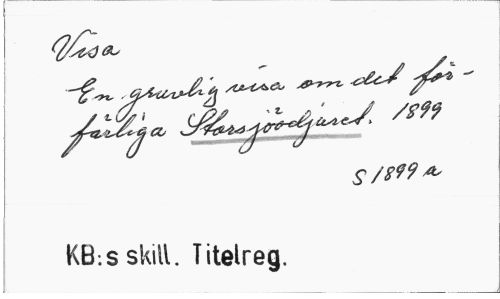 Visa
En gruvlig visa om det för-
färliga Storsjöodjuret. 1899
S 1899 a
KB:s skill. Titelreg.